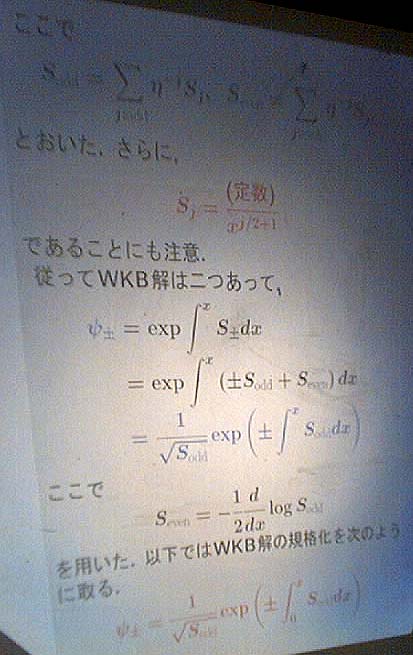 ここで
S_odd = ∑_{j:odd} η^{-j} S_j, S_even = ∑ η^{-j} S_j
とおいた. さらに,
S_j = (定数) / x^{j/2+1}
であることにも注意.
従ってWKB解は二つあって,
ψ_± = exp ∫^x S_± dx
= exp ∫^x (±S_odd + S_even) dx
= 1/√S_odd exp (± ∫^x S_odd dx)
ここで
S_even = -1/2 d/dx log S_odd
を用いた. 以下ではWKB解の規格化を次のよう
に取る.
ψ_± = 1/√S_odd exp (± ∫_0^x S_odd dx)